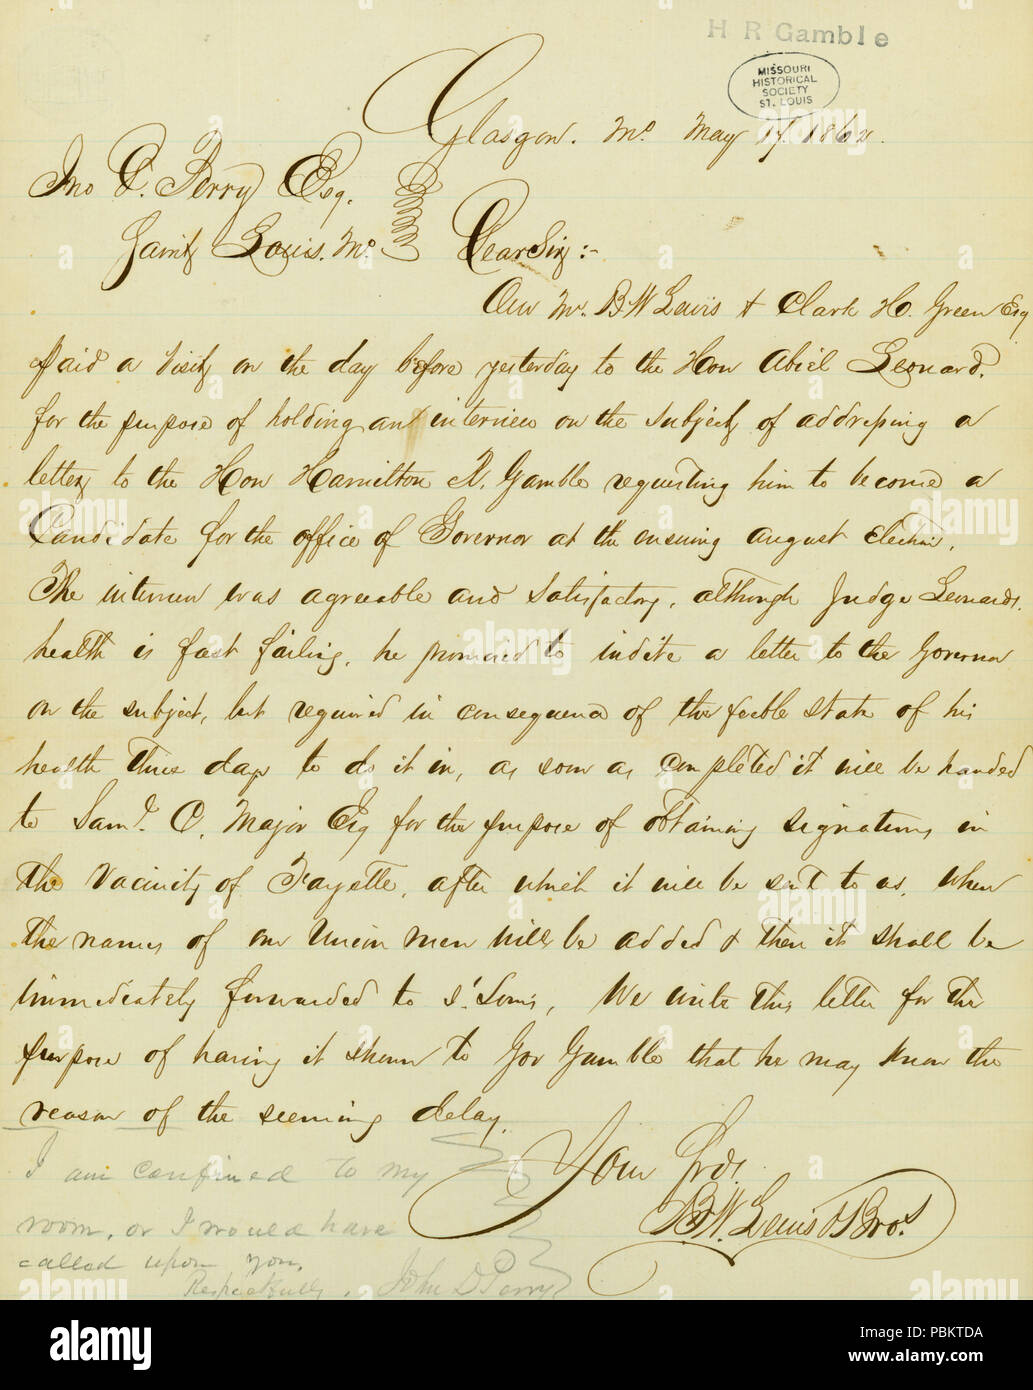 H R Gamble
MISSOURI
HISTORICAL
SOCIETY
ST. LOUIS
Glasgow. Mo May 17. 1862.
Jno D. Perry Esq.
Saint Louis. Mo
Dear Sir:-
Our Mr. B W Lewis & Clark H. Green Esq
Paid a visit on the day before yesterday to the Hon Abiel Leonard.
for the purpose of holding an interview on the subject of addressing a
letter to the Hon Hamilton R. Gamble requesting him to become a
Candidate for the office of Governor at the ensuing august Election.
The interview was agreeable and satisfactory, although Judge Leonards.
health is fast failing, he promised to indite a letter to the Governor
on the subject, but required in consequence of the feeble state of his
health three days to do it in, as soon as completed it will be handed
to Saml. C. Major Esq for the purpose of obtaining signatures in
the vacinity of Fayette, after which it will be sent to us, when
the names of our Union men will be added & then it shall be
immediately forwarded to St. Louis, We write this letter for the
purpose of having it shown to Gov Gamble that he may know the
reason of the seeming delay.
Your frds.
B. W. Lewis & Bros
I am confined to my
room, or I would have
called upon you,
Respectfully, John D Perry
alamy
Image ID: PBKTDA
www.alamy.com